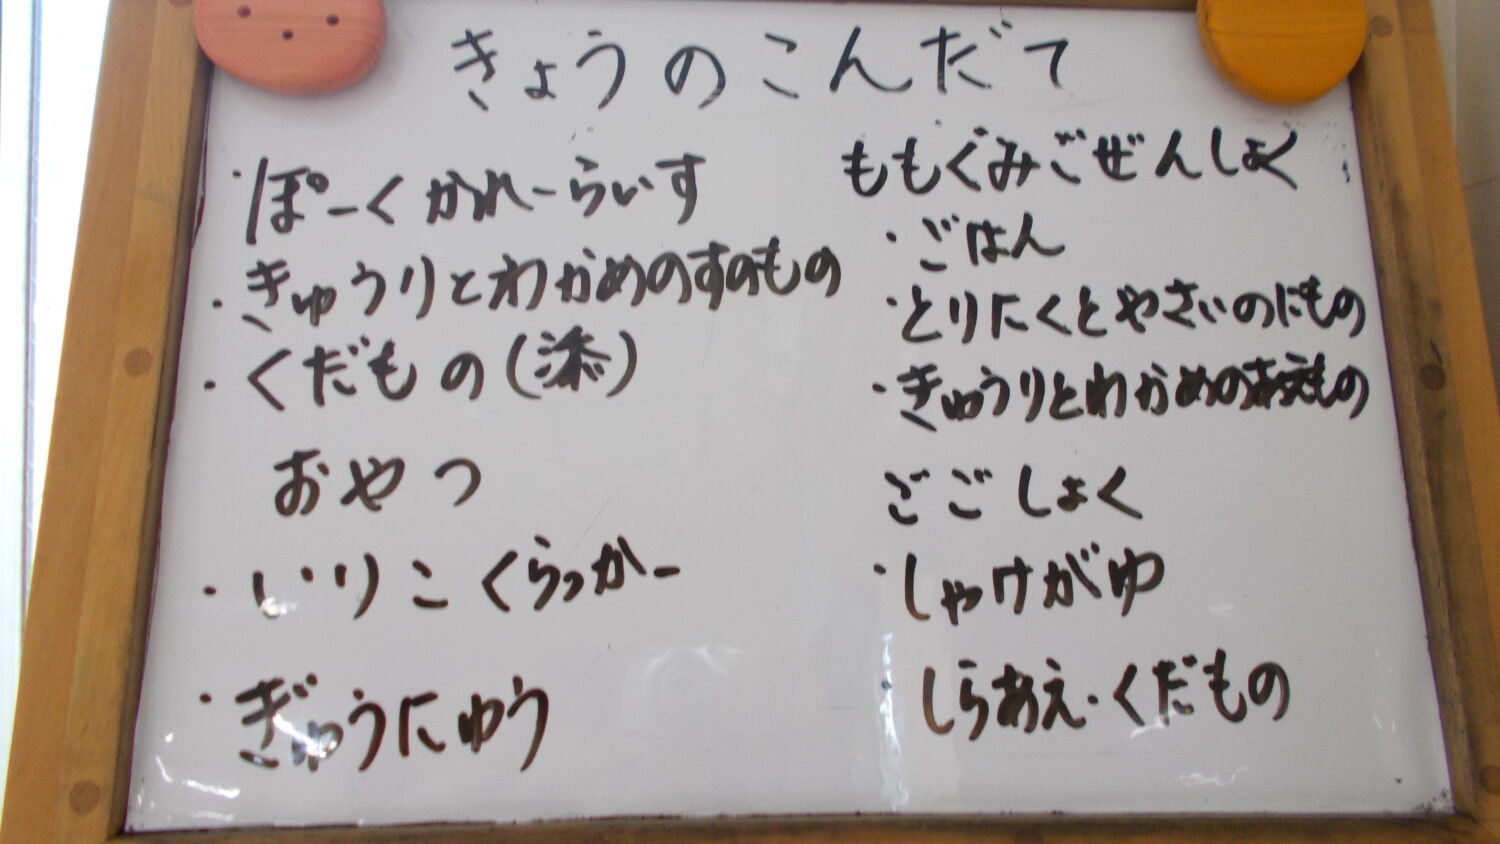 きょうのこんだて
・ぽーくかれーらいす
・きゅうりとわかめのすのもの
・くだもの()
おやつ
・いりこくらっかー
・ぎゅうにゅう
ももぐみごぜんしょく
・ごはん
・とりにくとやさいのにもの
・きゅうりとわかめのあえもの
ごごしょく
・しゃけがゆ
・しらあえ・くだもの